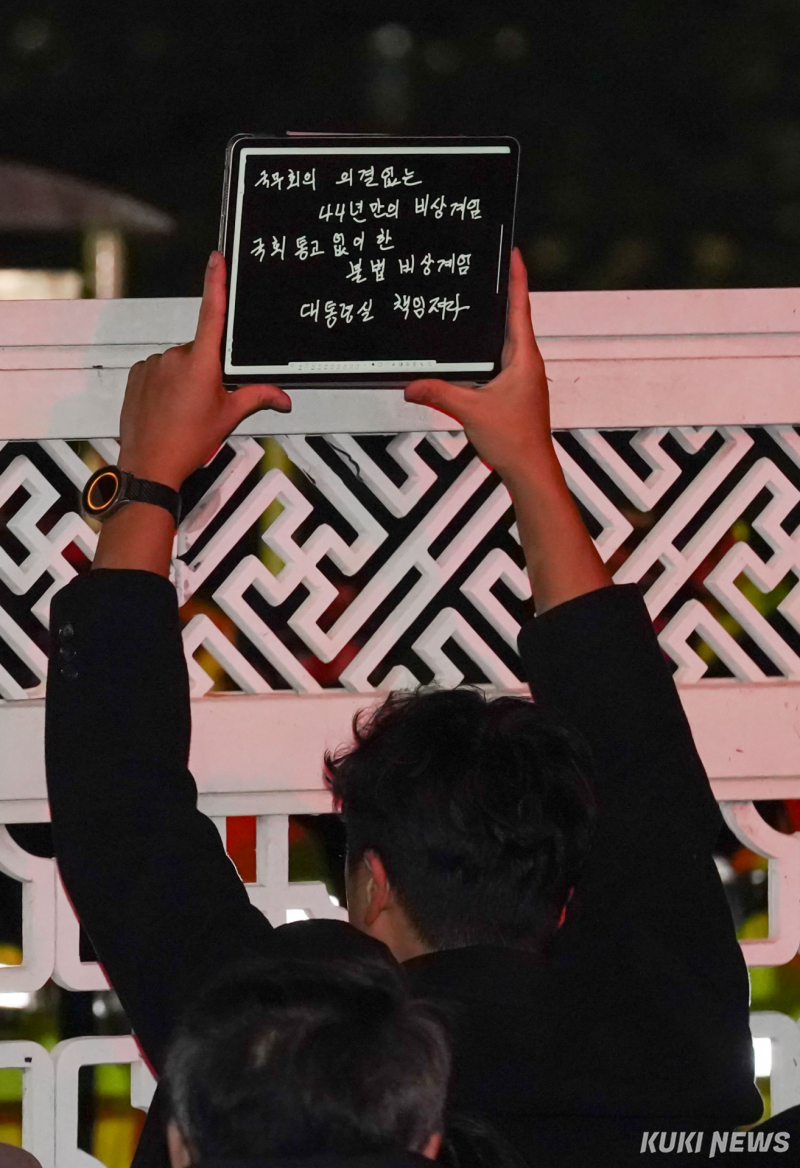 국무회의 의결없는
44년만의 비상계엄
국회 통고 없이 한
불법 비상계엄
대통령실 책임져라
KUKI NEWS